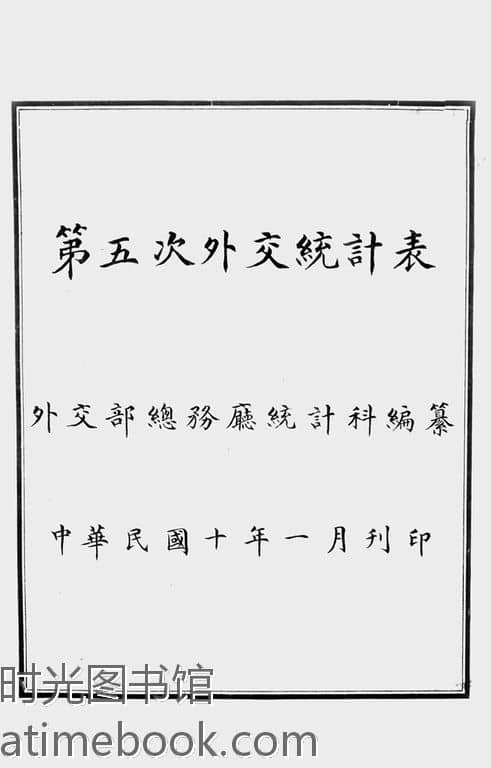 第五次外交統計表
外交部總務廳統計科編纂
中華民國十年一月刊印
时光图书馆
atimebook.com